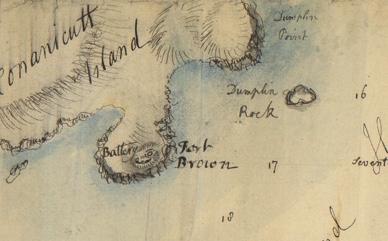 Conanicutt
Island
Dumplin
Point
Dumplin
Rock
16
Battery
Fort
Brown
17
18